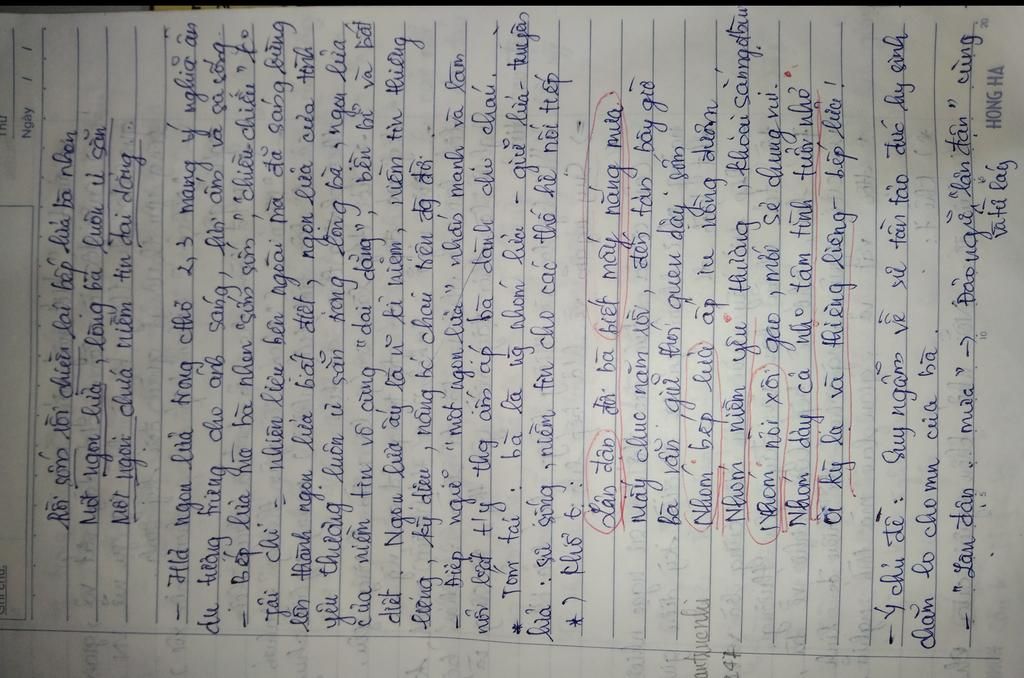 Thứ
Ngày / /
Ghi chú:
Rồi sớm rồi chiều lại bếp lửa bà nhen
Một ngọn lửa, lòng bà luôn ủ sẵn
Một ngọn chứa niềm tin dai dẳng
- H/a ngọn lửa trong thơ 2, 3 mang ý nghĩa ẩn
dụ tượng trưng cho ánh sáng, hơi ấm và sự sống
- Bếp lửa mà bà nhen "sớm sớm" "chiều chiều" ko
chỉ = nhiên liệu bên ngoài mà đã sáng bừng
lên thành ngọn lửa bất diệt, ngọn lửa của tình
yêu thương luôn ủ sẵn trong lòng bà, ngọn lửa
của niềm tin vô cùng "dai dẳng", bền bỉ và bất
diệt. Ngọn lửa ấy là kỉ niệm, niềm tin thiêng
liêng, kỳ diệu, nâng bước cháu trên đg đời
- Điệp ngữ "một ngọn lửa" nhấn mạnh và làm
nổi bật t/y thg ấm áp bà dành cho cháu.
* Tóm lại: bà là ng nhóm lửa - giữ lửa - truyền
lửa: sự sống, niềm tin cho các thế hệ nối tiếp
*) Khổ 6:
Lận đận đời bà biết mấy nắng mưa
Mấy chục năm rồi, đến tận bây giờ
Bà vẫn giữ thói quen dậy sớm
Nhóm bếp lửa ấp iu nồng đượm
Nhóm niềm yêu thương, khoai sắn ngọt bùi
Nhóm nồi xôi gạo mới sẻ chung vui
Nhóm dậy cả những tâm tình tuổi nhỏ
Ôi kỳ lạ và thiêng liêng - bếp lửa!
- Ý chủ đề: Suy ngẫm về sự tần tảo đức hy sinh
chăm lo cho mn của bà.
- "Lận đận", "nắng mưa" → Đảo ngữ, "lận đận" cùng
và từ láy
247
5
10
20
HONG HA